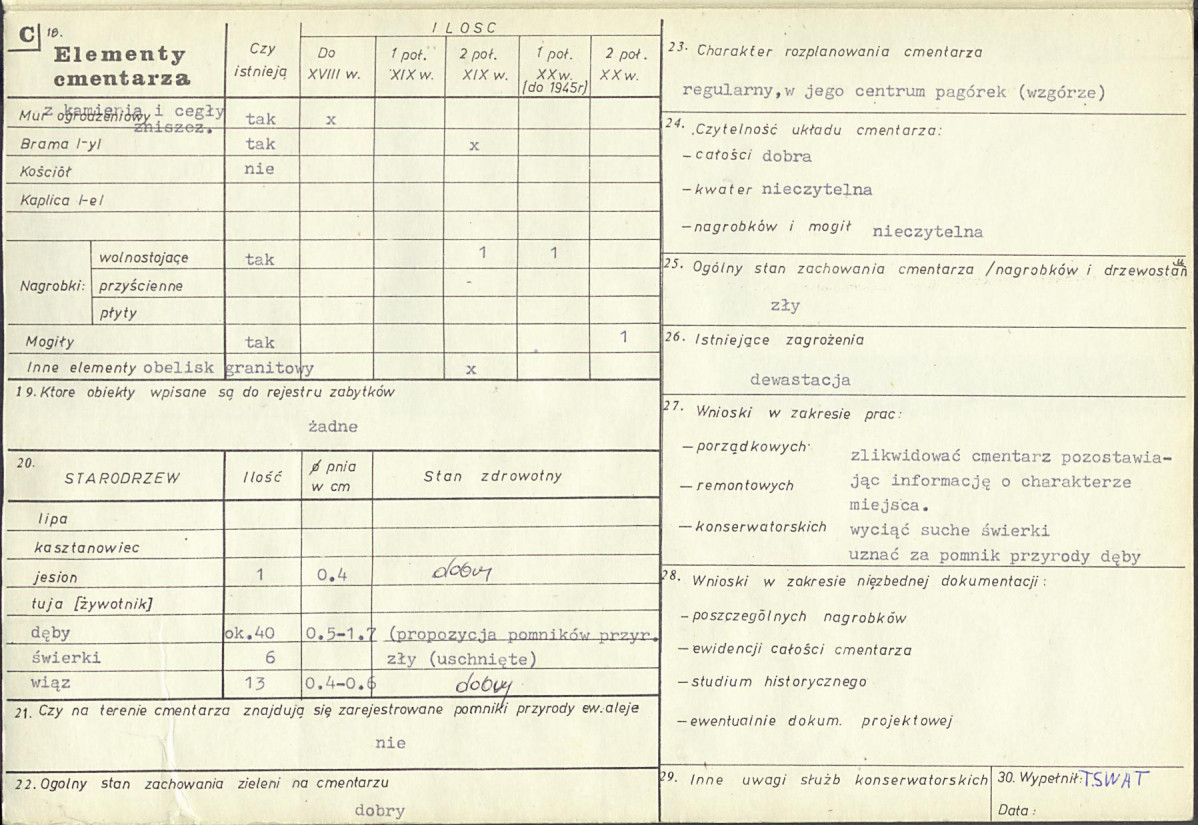 C 18.
Elementy
cmentarza
Czy
istnieją
ILOSC
Do
XVIII w.
1 poł.
XIX w.
2 poł.
XIX w.
1 poł.
XX w.
[do 1945r]
2 poł.
XX w.
Mur ogrodzeniowy z kamienia i cegły
zniszcz. tak x
Brama /-y/ tak x
Kościół nie
Kaplica /-e/
Nagrobki:
wolnostojące tak 1 1
przyścienne -
płyty
Mogiły tak 1
Inne elementy obelisk granitowy x
19. Ktore obiekty wpisane są do rejestru zabytków
żadne
20.
STARODRZEW Ilość ø pnia
w cm Stan zdrowotny
lipa
kasztanowiec
jesion 1 0.4 dobry
tuja [żywotnik]
dęby ok.40 0.5-1.7 (propozycja pomników przyr.
świerki 6 zły (uschnięte)
wiąz 13 0.4-0.6 dobry
21. Czy na terenie cmentarza znajdują się zarejestrowane pomniki przyrody ew. aleje
nie
22. Ogolny stan zachowania zieleni na cmentarzu
dobry
23. Charakter rozplanowania cmentarza
regularny, w jego centrum pagórek (wzgórze)
24. Czytelność układu cmentarza:
- całości dobra
- kwater nieczytelna
- nagrobków i mogił nieczytelna
25. Ogólny stan zachowania cmentarza /nagrobków i drzewostan
zły
26. Istniejące zagrożenia
dewastacja
27. Wnioski w zakresie prac:
- porządkowych zlikwidować cmentarz pozostawia-
jąc informację o charakterze
- remontowych
miejsca.
- konserwatorskich wyciąć suche świerki
uznać za pomnik przyrody dęby
28. Wnioski w zakresie niezbędnej dokumentacji:
- poszczególnych nagrobków
- ewidencji całości cmentarza
- studium historycznego
- ewentualnie dokum. projektowej
29. Inne uwagi służb konserwatorskich
30. Wypełnił: T.SWAT
Data: